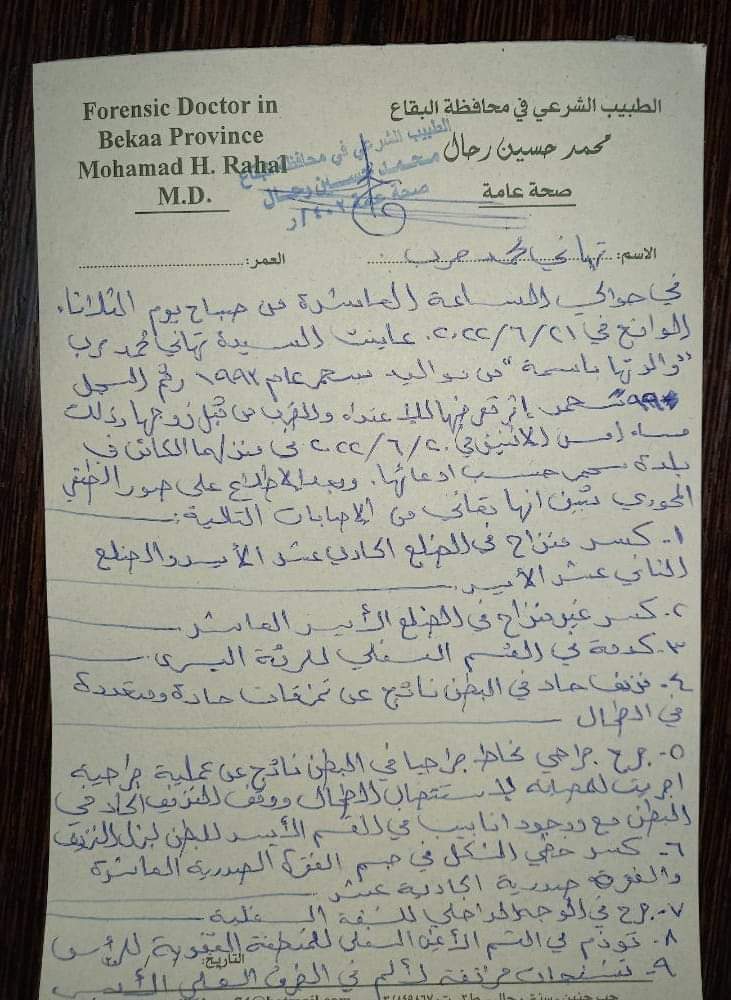 Forensic Doctor in
Bekaa Province
Mohamad H. Rahal
M.D.
الطبيب الشرعي في محافظة البقاع
محمد حسين رحال
صحة عامة
الطبيب الشرعي في محافظة البقاع
محمد حسين رحال
صحة عامة
الاسم: تهاني محمد حرب
العمر:
في حوالي الساعة العاشرة من صباح يوم الثلاثاء
الواقع في ٢٠٢٢/٦/٢١، عاينت السيدة تهاني محمد حرب
"والدتها باسمة" من مواليد سحمر عام ١٩٩٢ رقم السجل
سحمر إثر تعرضها للاعتداء والضرب من قبل زوجها وذلك
مساء أمس الاثنين في ٢٠٢٢/٦/٢٠ في منزلهما الكائن في
بلدة سحمر حسب ادعائها. وبعد الاطلاع على صور الطبقي
المحوري تبين انها تعاني من الإصابات التالية:
١- كسر منزاح في الضلع الحادي عشر الأيسر والضلع
الثاني عشر الأيسر
٢- كسر غير منزاح في الضلع الأيسر العاشر
٣- كدمة في القسم السفلي للرئة اليسرى
٤- نزيف حاد في البطن ناتج عن تمزقات حادة ومتعددة
في الطحال
٥- جرح جراحي مخاط جراحيا في البطن ناتج عن عملية جراحية
اجريت للمصابة لاستئصال الطحال ووقف النزيف الحاد في
البطن مع وجود انابيب في القسم الأيسر للبطن لبزل النزيف
٦- كسر خطي الشكل في جسم الفقرة الصدرية العاشرة
والفقرة صدرية الحادية عشر
٧- جرح في الوجه الداخلي للشفة السفلية
٨- تورم في القسم الأيمن السفلي للمنطقة القفوية للرأس
التاريخ:
٩- تشنجات مرافقة لألم في الطرف السفلي الأيسر